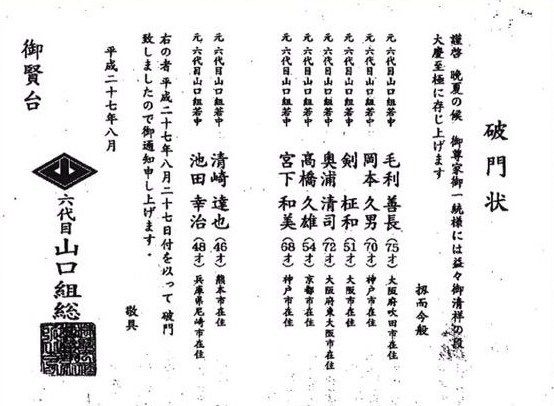 破門状
謹啓 晩夏の候 御尊家御一統様には益々御清祥の段
大慶至極に存じ上げます
扨而今般
元 六代目山口組若中 毛利善長(75才)大阪府吹田市在住
元 六代目山口組若中 岡本久男(70才)神戸市在住
元 六代目山口組若中 剣 柾和(51才)大阪市在住
元 六代目山口組若中 奥浦清司(72才)大阪府東大阪市在住
元 六代目山口組若中 髙橋久雄(54才)京都市在住
元 六代目山口組若中 宮下和美(68才)神戸市在住
元 六代目山口組若中 清崎達也(46才)熊本市在住
元 六代目山口組若中 池田幸治(48才)兵庫県尼崎市在住
右の者 平成二十七年八月二十七日付を以って 破門
致しましたので御通知申し上げます。
敬具
平成二十七年八月
六代目 山口組総
御賢台